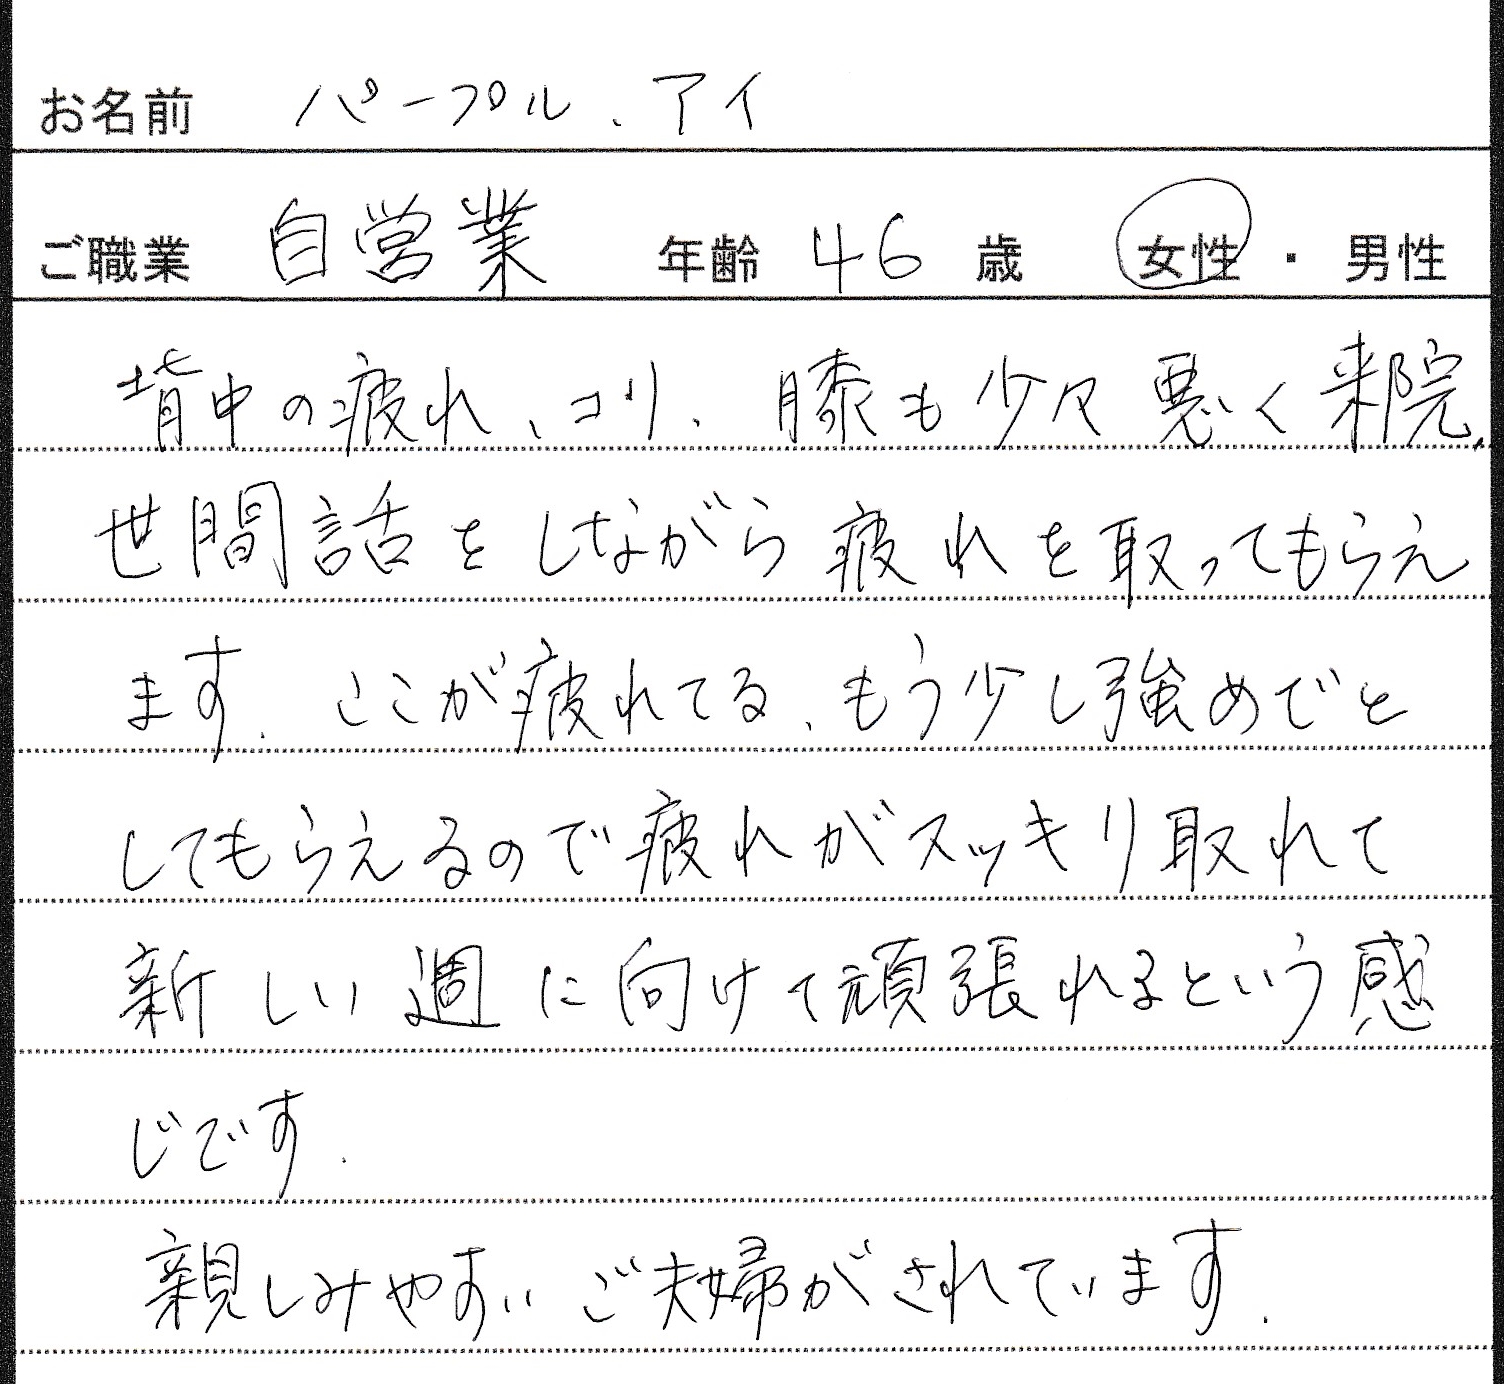 お名前 パープル、アイ
ご職業 自営業 年齢 46 歳 女性・男性
背中の疲れ、コリ、膝も少々悪く来院、
世間話をしながら疲れを取ってもらえ
ます。ここが疲れてる、もう少し強めでと
してもらえるので疲れがスッキリ取れて
新しい週に向けて頑張れるという感
じです。
親しみやすいご夫婦がされています。